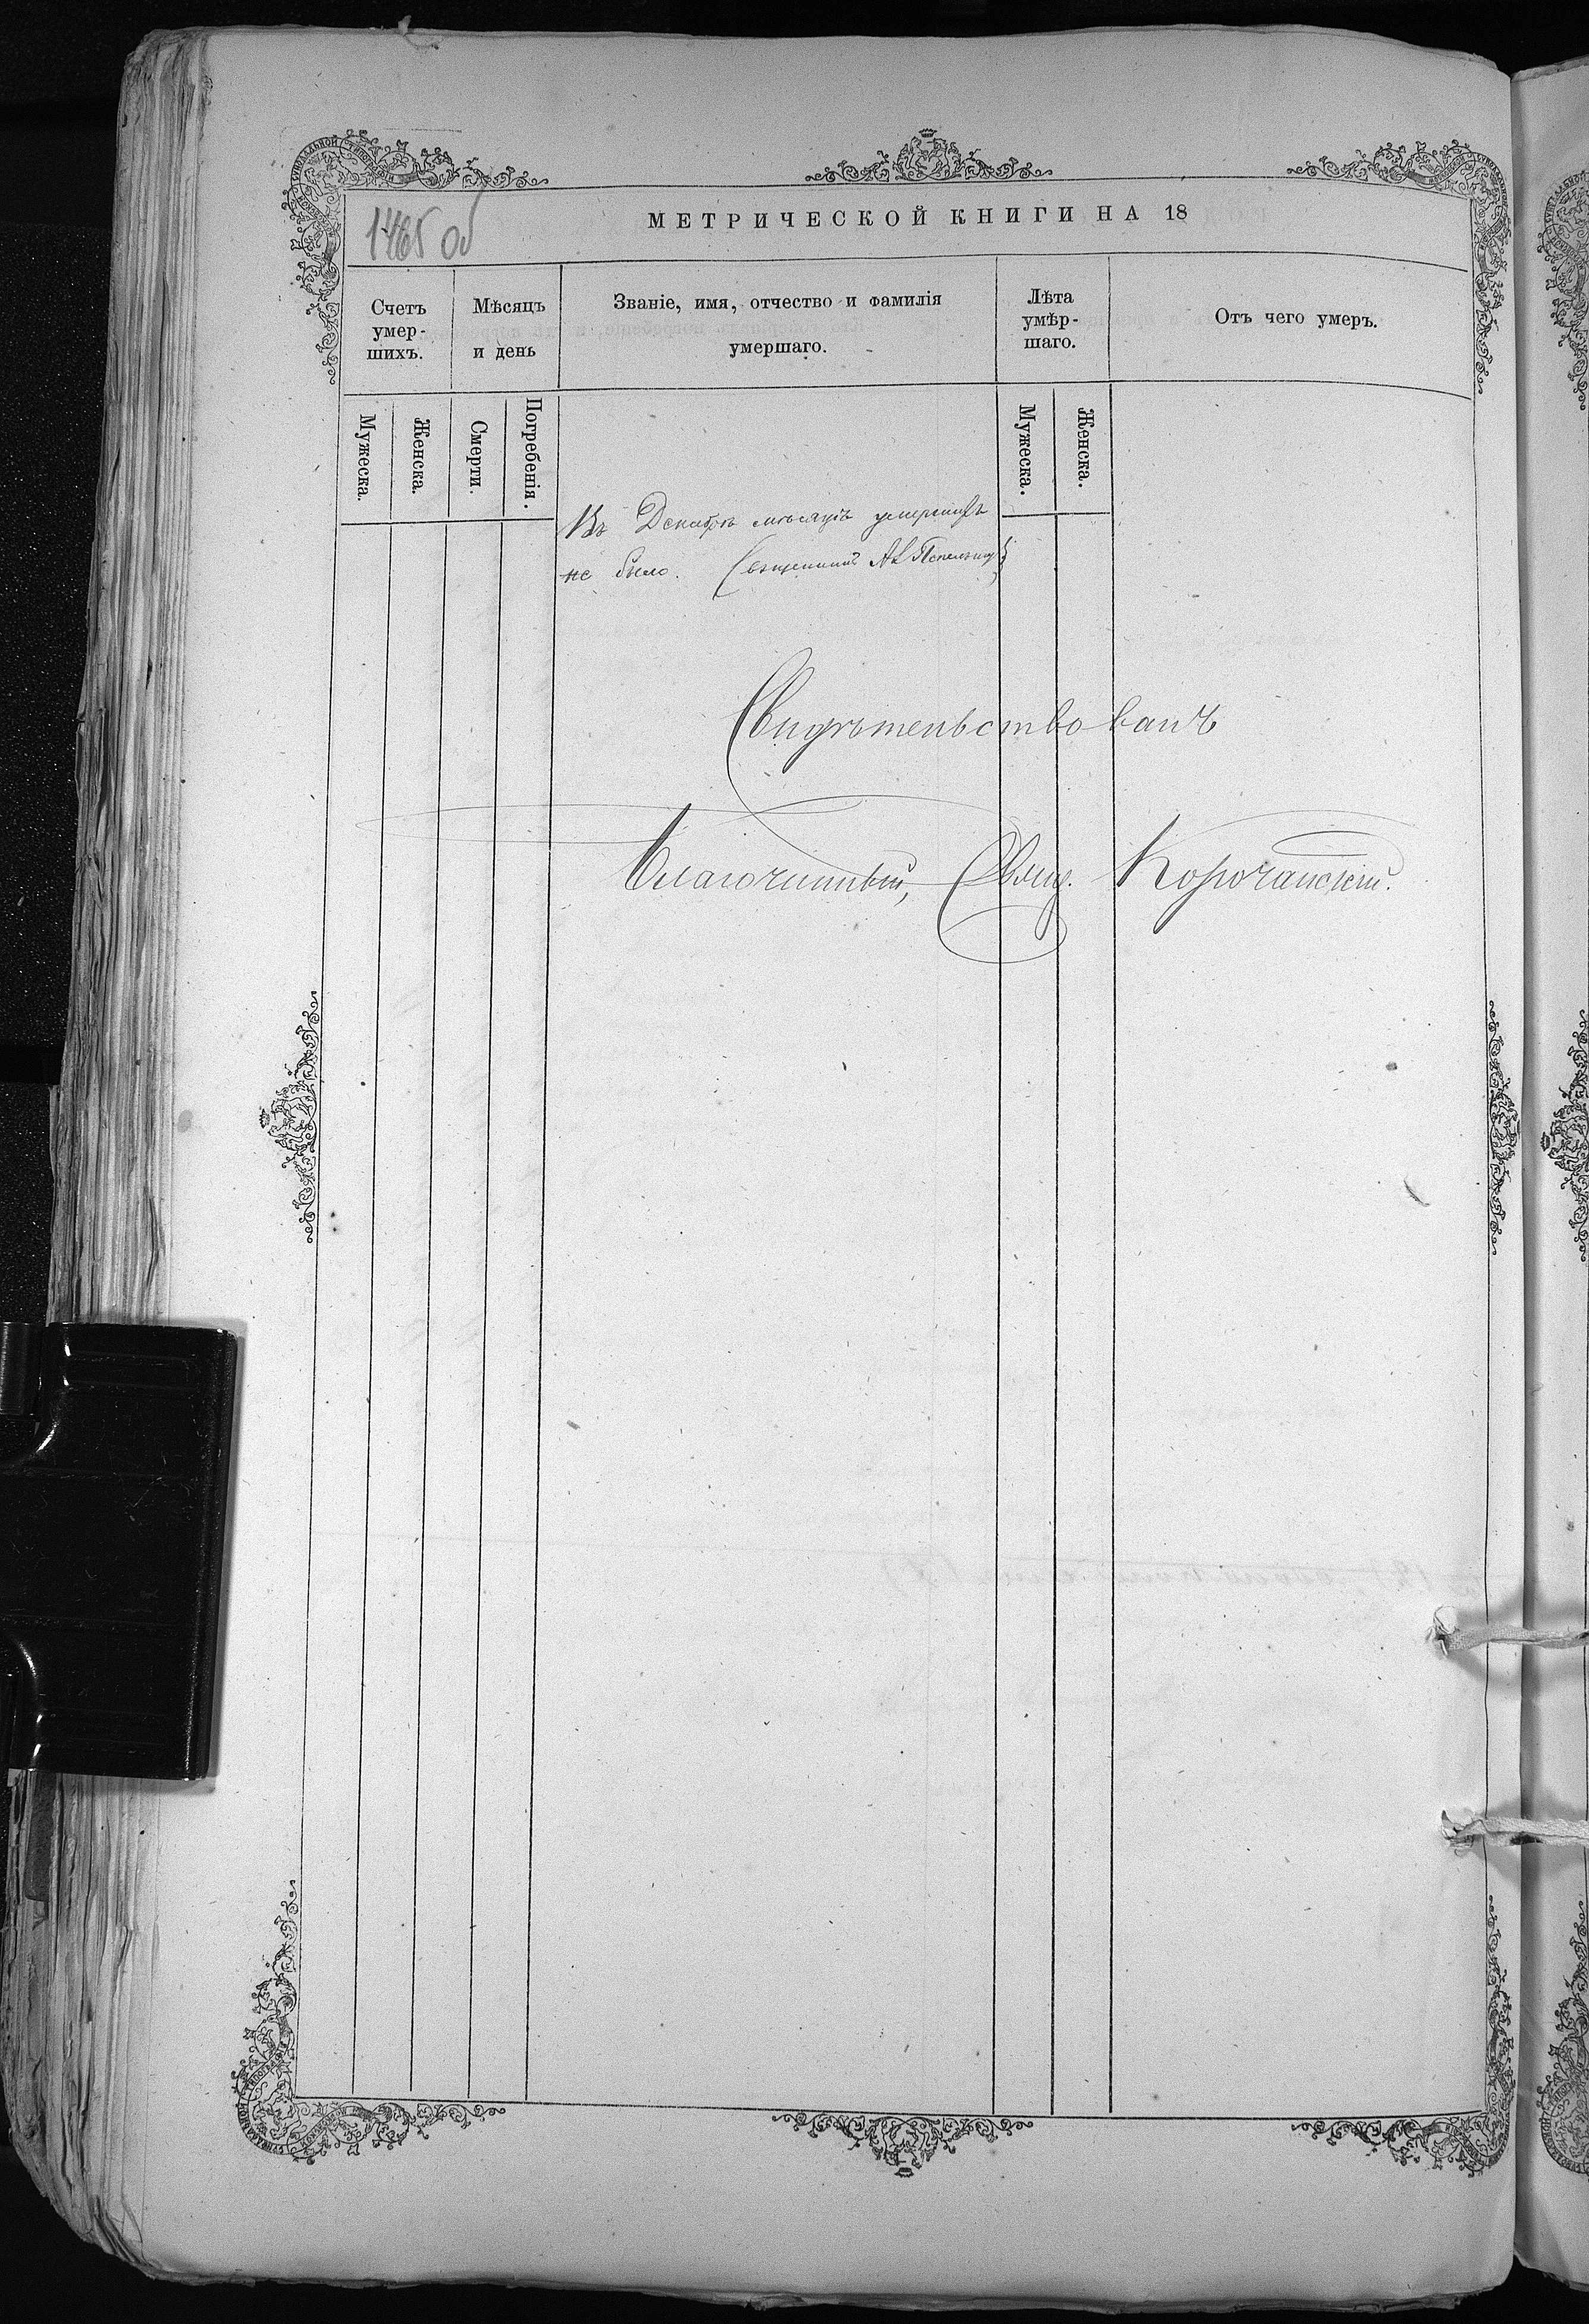 1465 об
МЕТРИЧЕСКОЙ КНИГИ НА 18
Счетъ умер-шихъ.
Мѣсяцъ и день
Званіе, имя, отчество и фамилія умершаго.
Лѣта умѣр-шаго.
Отъ чего умеръ.
Мужеска.
Женска.
Смерти.
Погребенія.
Мужеска.
Женска.
Въ Декабрѣ мѣсяцѣ умершихъ
не было. Священникъ
Свидѣтельствовалъ
Благочинный, Свящ. Корочанскій.